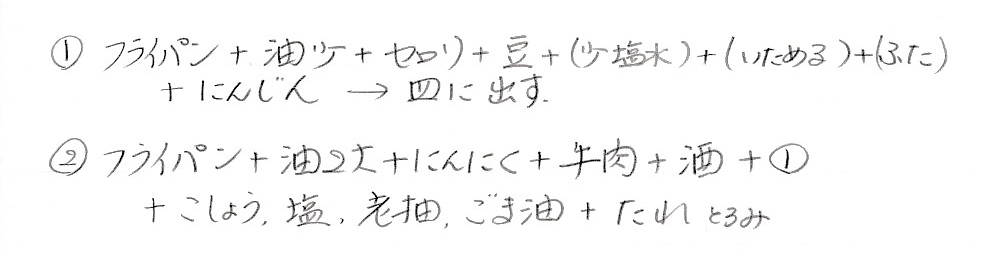 ① フライパン + 油少 + セロリ + 豆 + (少塩水) + (いためる) + (ふた)
+ にんじん → 皿に出す.
② フライパン + 油2大 + にんにく + 牛肉 + 酒 + ①
+ こしょう, 塩, 老抽, ごま油 + たれ とろみ